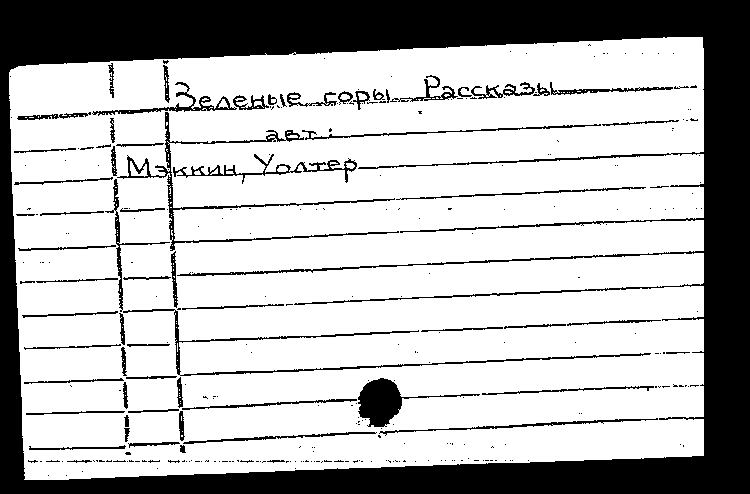 Зеленые горы Рассказы
авт:
Мэккин, Уолтер